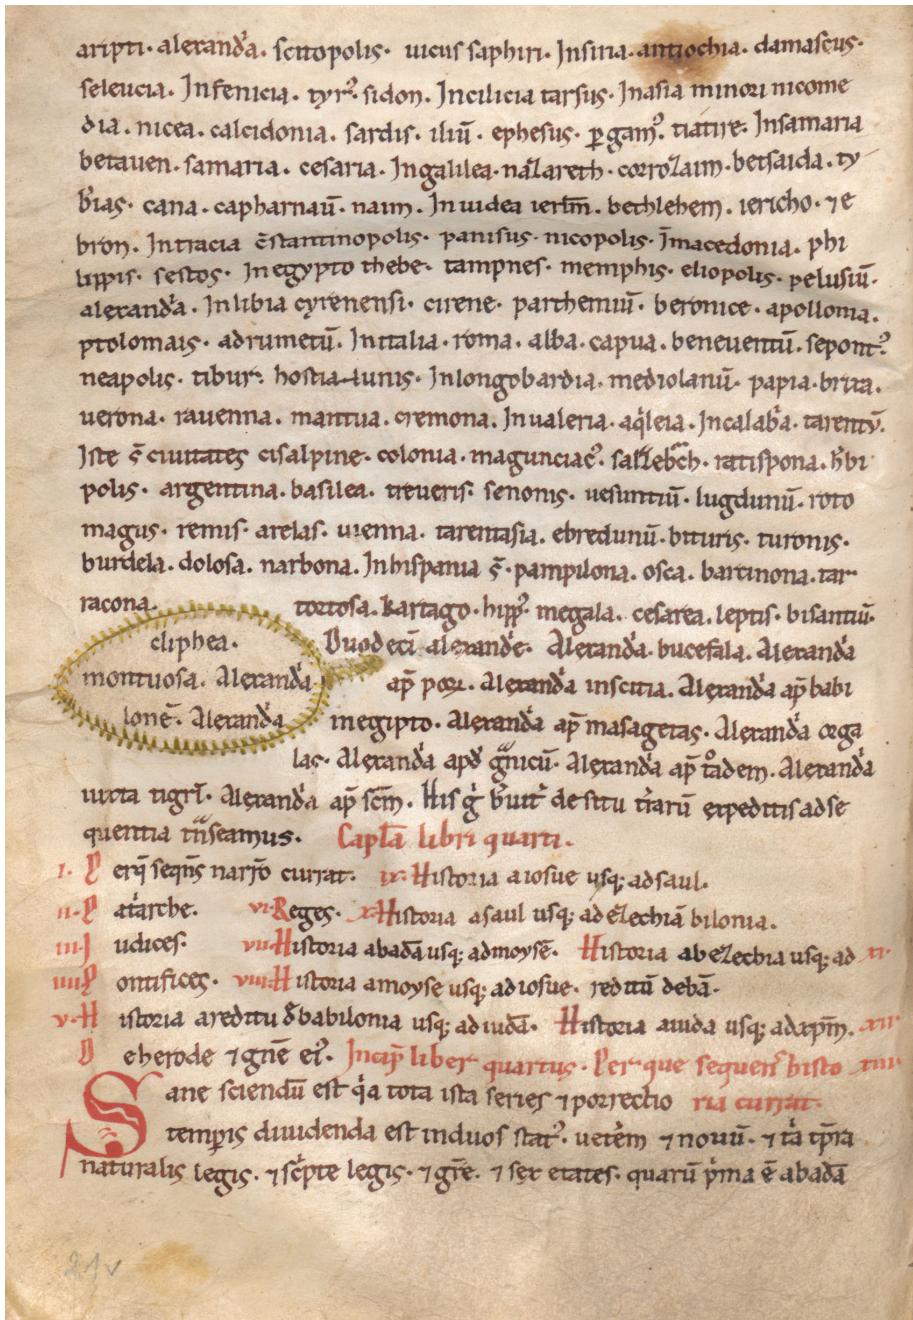 aripti. alexand'a. scitopolis. uicus saphiri. Insiria. antiochia. damascus.
seleucia. Infenicia. tyr᾽. sidon. Incilicia tarsus. Inasia minori nicome
dia. nicea. calcidonia. sardis. iliū. ephesus. ꝑgam᾽. tiatire. Insamaria
betauen. samaria. cesaria. Ingalilea. nazareth. corrozaim. betsaida. ty
b'ias. cana. capharnaū. naim. In iudea ierłm. bethlehem. iericho. ⁊ e
bron. Intracia c̄stantinopolis. panisus. nicopolis. Īmacedonia. phi
lippis. sestos. Inegypto thebe. tampnes. memphis. eliopolis. pelusiū.
alexand'a. Inlibia cyrenensi. cirene. parthemiū. beronice. apollonia.
ptolomais. adrumetū. Initalia. roma. alba. capua. beneuentū. sepont᾽.
neapolis. tibur. hostia. lunis. Inlongobardia. mediolanū. papia. brixa.
uerona. rauenna. mantua. cremona. Inualeria. aq'leia. Incalab'a. tarentū.
Iste s̄ ciuitates cisalpine. colonia. magunciac᾽. salzeb'ch. ratispona. h'bi
polis. argentina. basilea. treueris. senonis. uesuntiū. lugdunū. roto
magus. remis. arelas. uienna. tarentasia. ebredunū. bituris. turonis.
burdela. dolosa. narbona. Inhispania s̄. pampilona. osca. bartinona. tar
racona. tortosa. kartago. hipp᾽ megala. cesarea. leptis. bisantiū.
cliphea. Duodeci alexand'e. Alexand'a. bucefala. Alexand'a
montuosa. Alexand'a ap̄ por. Alexand'a inscitia. Alexand'a ap̄ babi
lonē. Alexand'a inegipto. Alexand'a ap̄ masagetas. Alexand'a orga
las. Alexand'a apd' gnicū. Alexand'a ap̄ t̊adem. Alexand'a
iuxta tigrī. Alexand'a ap̄ scm̄. His g' b'uit' de situ t'rarū expeditis adse
quentia tn̄seamus. Capl̄a libri quarti.
I. P erq̄ seqn̄s narr̄o currat. ix. Historia aiosue usq; adsaul.
II. P at'arche. vi. Reges. x. Historia asaul usq; ad ezechiā bilonia.
III. I udices. vii. Historia abadā usq; admoysē. Historia abezechia usq; ad xi.
IIII. P ontifices. viii. Historia amoyse usq; adiosue. reditū debā.
v. H istoria areditu d'babilonia usq; adiudā. Historia aiuda usq; adxp̄m. xii
D eherode ⁊ gn̄e ei᾽. Incip̄ liber quartus. Per que sequens histo xiii
Sane sciendū est q'a tota ista series ⁊ porrectio ria currat.
temꝑis diuidenda est induos stat᾽. uet'em ⁊ nouū. ⁊ t'a tp̄ra
naturalis legis. ⁊ sc'pte legis. ⁊ gr̄e. ⁊ sex etates. quarū p'ma ē abadā
21v